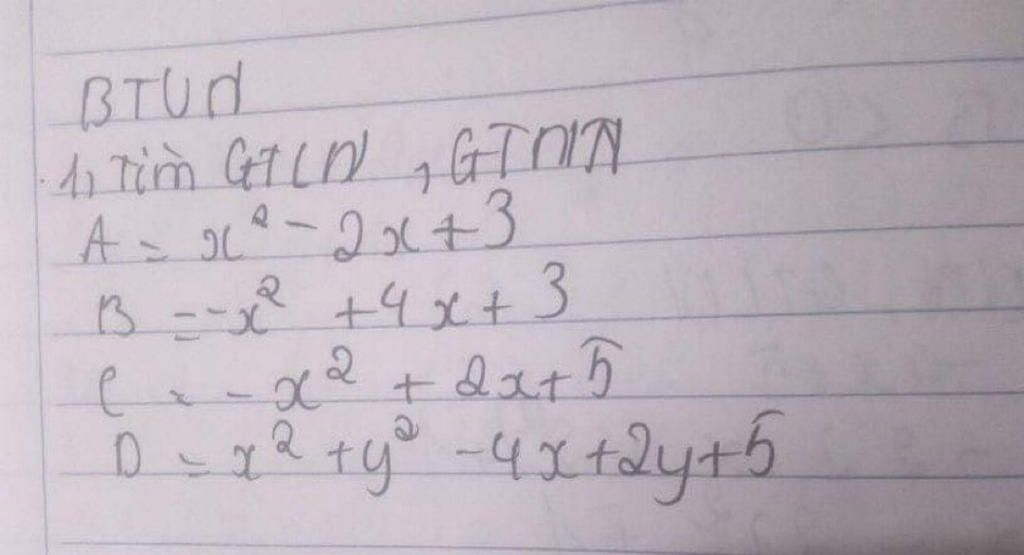 BTVN
1, Tìm GTLN, GTNN
A = x² - 2x + 3
B = -x² + 4x + 3
C = -x² + 2x + 5
D = x² + y² - 4x + 2y + 5